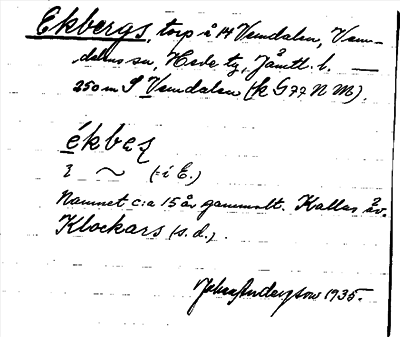 Ekbergs, torp å 14 Vemdalen, Vem-
dalens sn, Hede tg, Jämtl. l. —
250 m S Vemdalen (k G 77 N M).
ékbeʐ
i ~ (: i E.)
Namnet c:a 15 år gammalt. Kallas äv.
Klockars (s.d.).
Johan Anderzson 1935.